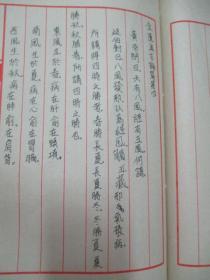 金匱真言論篇第四
黃帝問曰天有八風經有五風何謂
岐伯對曰八風發邪以為經風觸五藏邪氣發病
所謂得四時之勝者春勝長夏長夏勝冬冬勝夏夏
勝秋秋勝春所謂四時之勝也
東風生於春病在肝俞在頸項
南風生於夏病在心俞在胸脇
西風生於秋病在肺俞在肩背